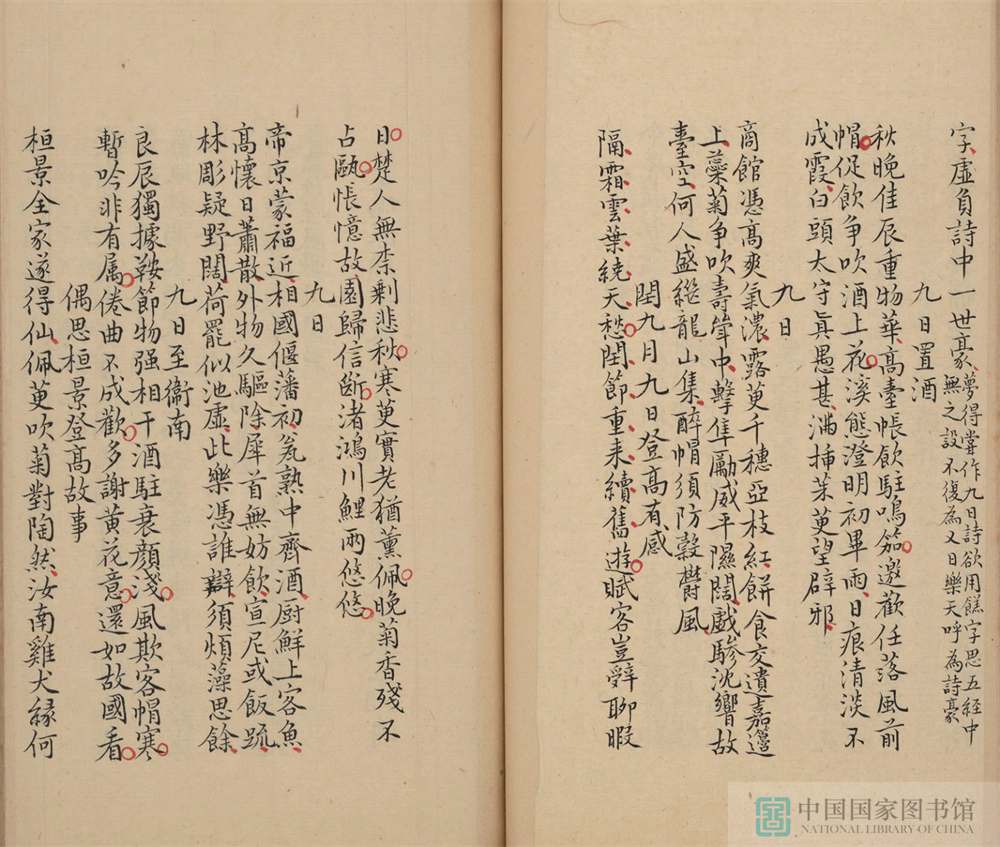 字虛負詩中一世豪
夢得嘗作九日詩欲用餻字思五経中
無之設不復為又日樂天呼為詩豪
九日置酒
秋晚佳辰重物華高臺帳飲駐鳴笳邀歡任落風前
帽促飲争吹酒上花溪態澄明初畢雨日痕清淡不
成霞白頭太守真愚甚滿挿茱萸望辟邪
九日
商館憑髙爽氣濃露萸千穗亞枝紅餅食交遺嘉籩
上蘂菊争吹壽斝中擊隼勵威平隰闊戲驂沈響故
臺空何人盛継龍山集醉帽須防縠鬱風
閏九月九日登髙有感
隔霜雲葉繞天愁閏節重来續舊游賦客豈辭聊暇
日楚人無柰剰悲秋寒萸實老猶薰佩晚菊香殘不
占甌悵憶故園歸信斷渚鴻川鯉兩悠悠
九日
帝京蒙福近相國偃藩初瓮熟中齊酒厨鮮上客魚
髙懐日蕭散外物久驅除犀首無妨飲宣尼或飯踈
林彫疑野闊荷罷似池虛此樂憑誰辯須煩藻思餘
九日至衞南
良辰獨據鞍節物强相干酒駐衰顔淺風欺客帽寒
暫吟非有属倦曲不成歡多謝黄花意還如故國看
偶思桓景登髙故事
桓景全家遂得仙佩萸吹菊對陶然汝南雞犬縁何
中国国家图书馆
NATIONAL LIBRARY OF CHINA